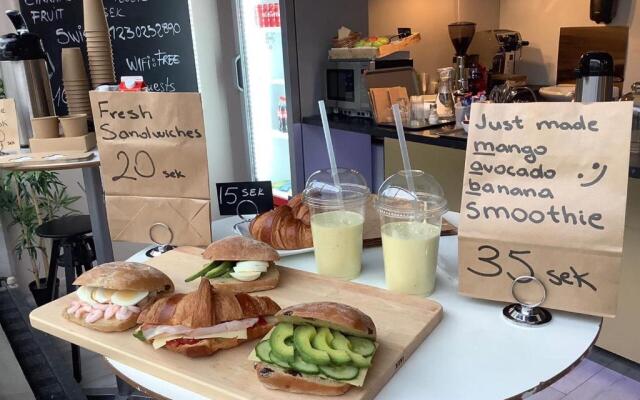 FRUIT
5wi
SEK
1230252890
WIFI FREE
guests
Fresh
Sandwiches
20 SEK
15 SEK
Just made
mango
avocado
banana
Smoothie
35 SEK